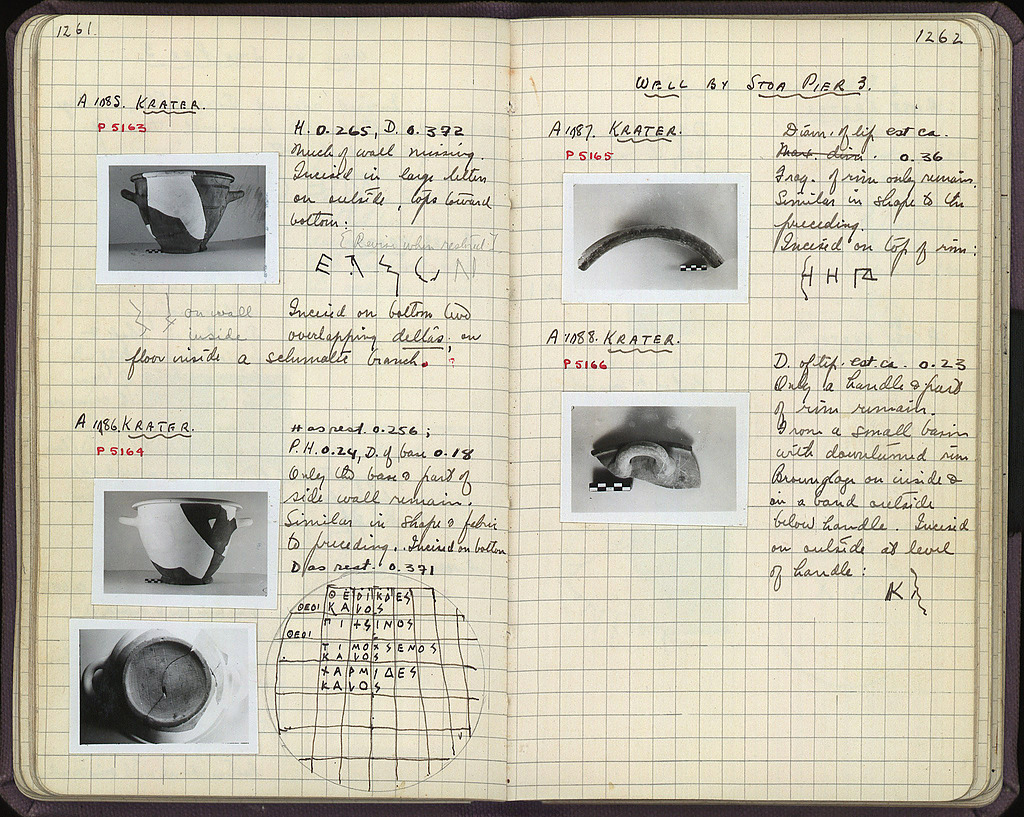 1261.
A 1085. KRATER.
P 5163
H. 0.265, D. 0.372
Much of wall missing.
Incised in large letters
on outside, tops toward
bottom:
[Revise when restored]
on wall
inside
Incised on bottom two
overlapping deltas; on
floor inside a schematic branch. ?
A 1086. KRATER.
P 5164
H as rest. 0.256;
P.H. 0.24, D. of base 0.18
Only the base & part of
side wall remain.
Similar in shape & fabric
to preceding. Incised on bottom
D as rest. 0.371
ΘΕΟΙ
ΚΑVΟS
ΘΕΟΙ
ΤΙΜΟΧSΕΝΟS
ΚΑVΟS
ΧΑΡΜΙΔΕS
ΚΑVΟS
1262
WELL BY STOA PIER 3.
A 1087. KRATER.
P 5165
Diam. of lip est ca.
Max. diam. 0.36
Frag. of rim only remains.
Similar in shape to the
preceding.
Incised on top of rim:
A 1088. KRATER.
P 5166
D. of lip. est. ca. 0.23
Only a handle & part
of rim remain.
From a small basin
with downturned rim
Brown glaze on inside &
in a band outside
below handle. Incised
on outside at level
of handle: